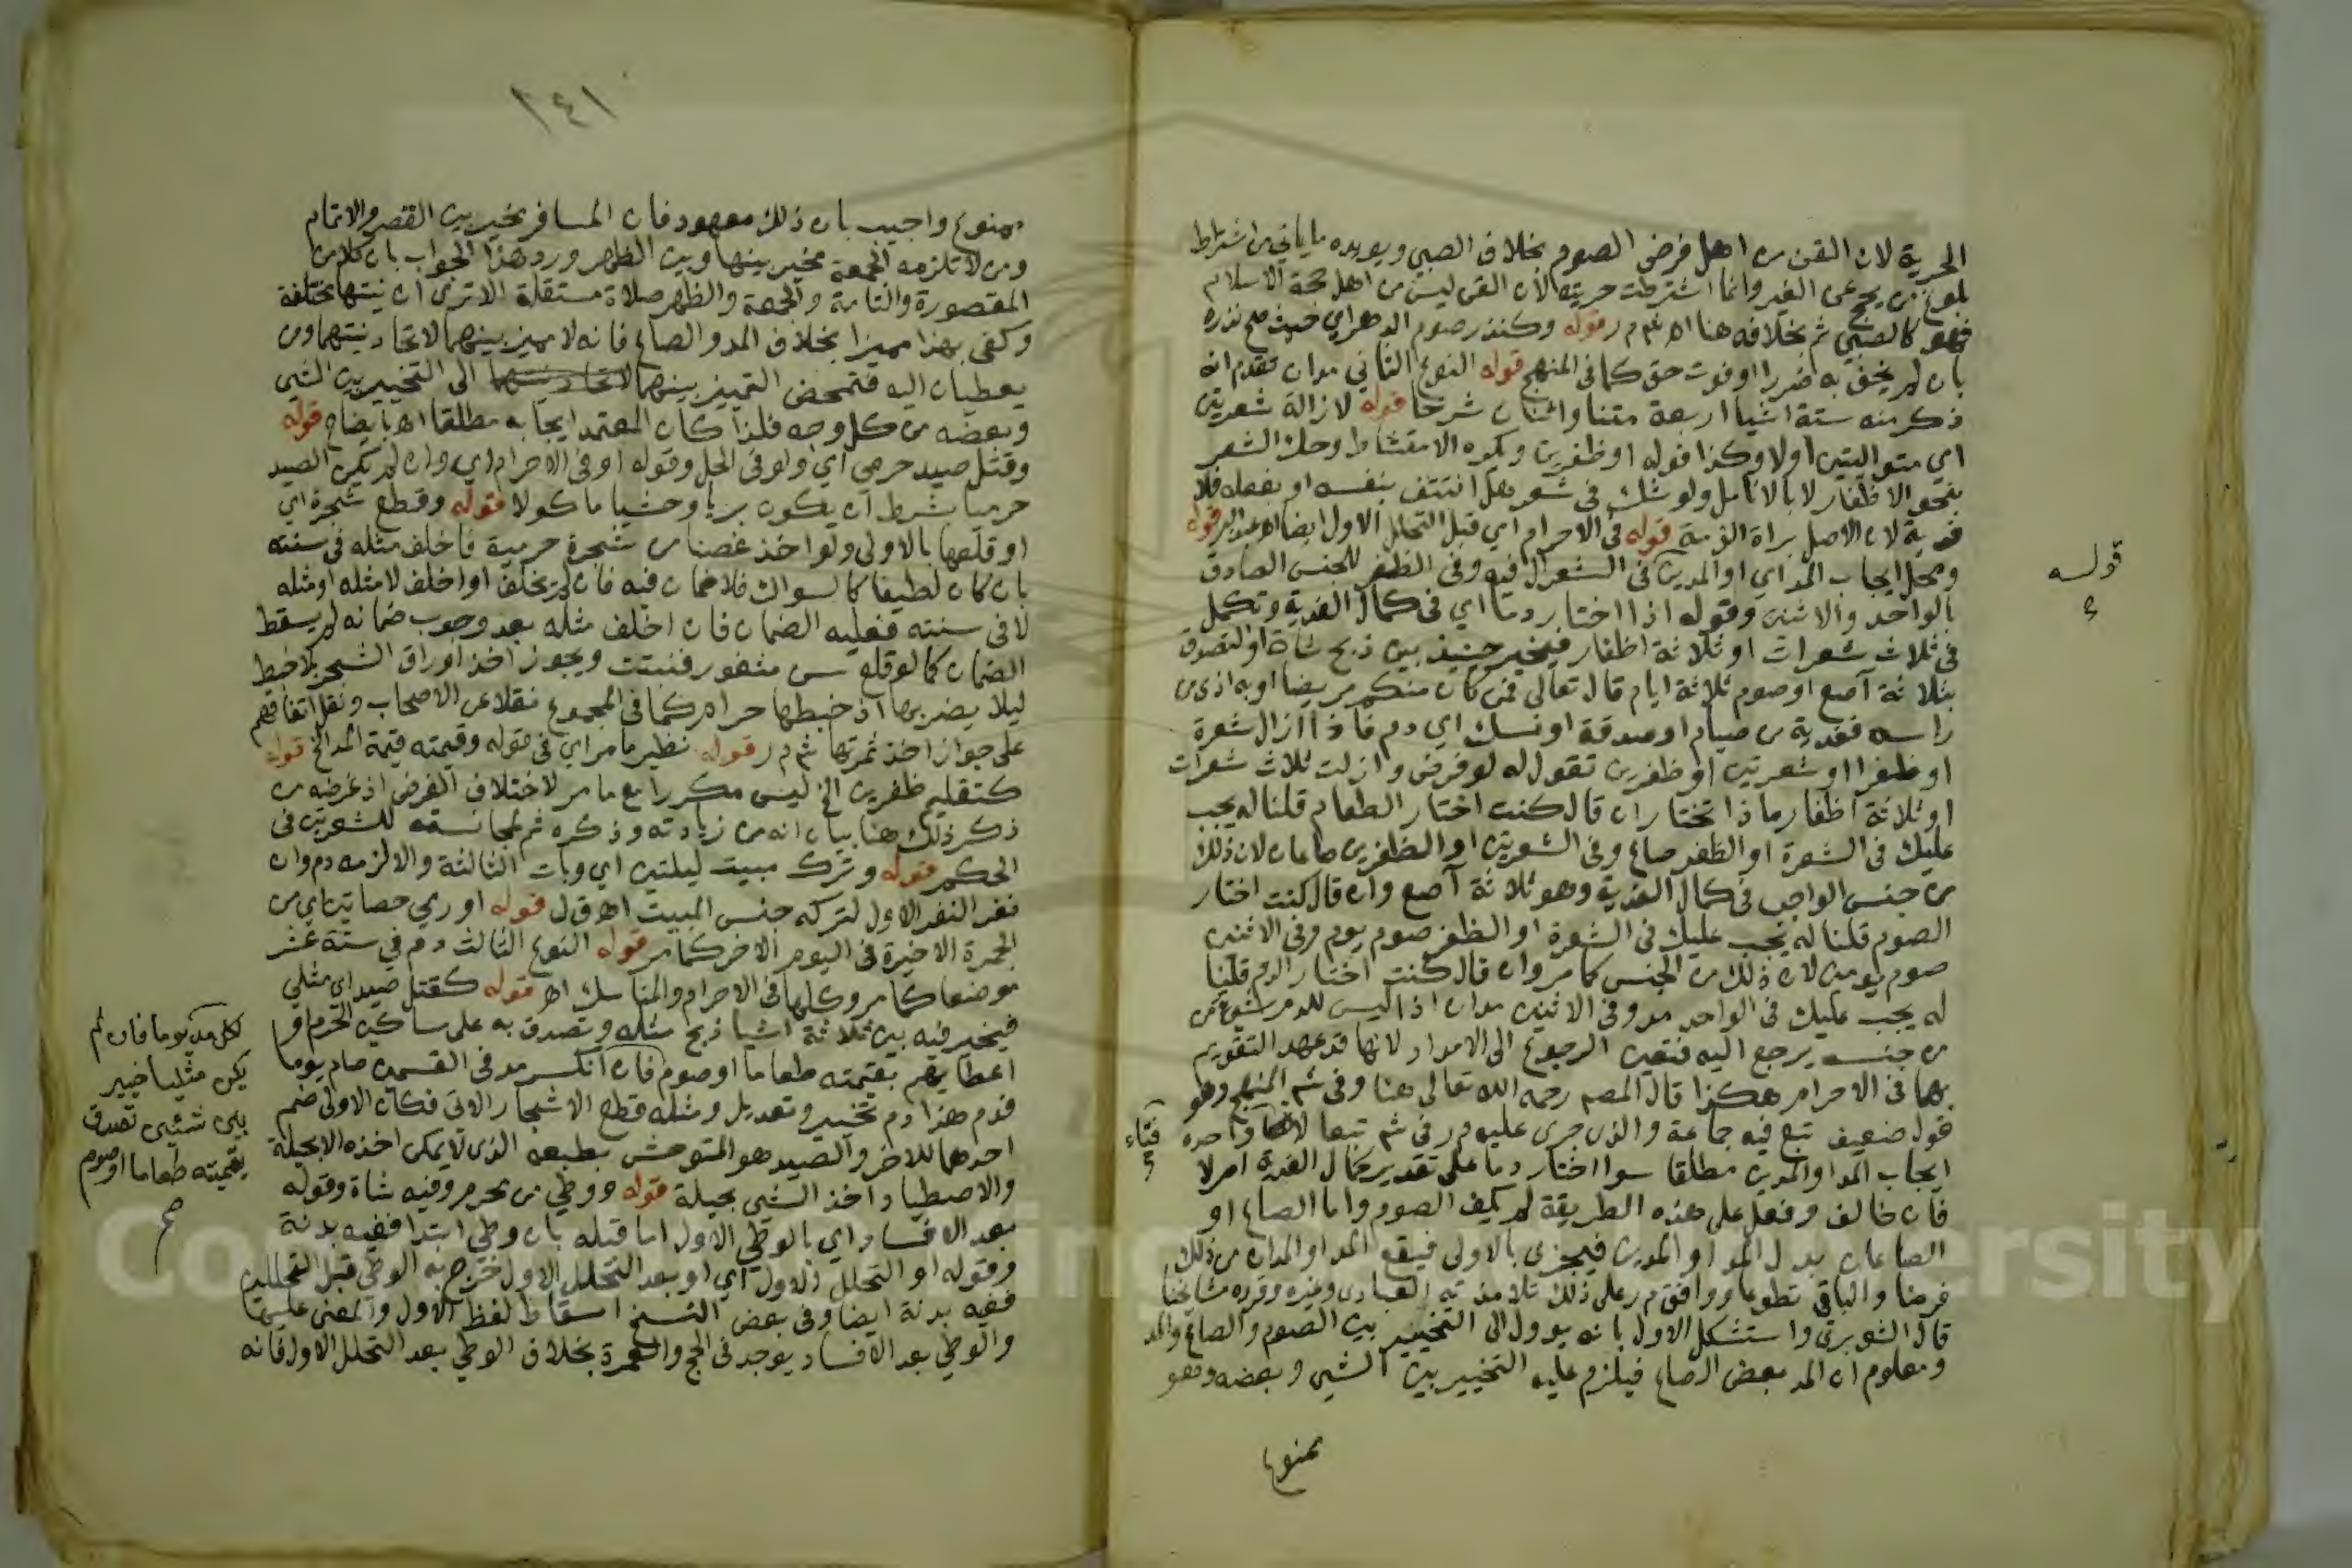 الحرية لان القن من اهل فرض الصوم بخلاف الصبي ويويده ما ياتي من اشتراط
بلوغ من يحج عن الغير وانما اشترطت حريته لان القن ليس من اهل حجة الاسلام
فهو كالصبي ثم بخلافه هنا اهـ ش م ر قوله وكنذر صوم الدهر اي حيث صح نذره
بان لم يخف به ضررا او فوت حق كما في المنهج قوله النوع الثاني مدان تقدم انه
ذكر منه ستة اشيا اربعة متنا واثنان شرحا قوله لازالة شعرتين
اي متواليتين اولا وكذا قوله او ظفرين ويكره الامتشاط وحك الشعر
بنحو الاظفار لا بالانامل ولو شك في شعر هل انتتف بنفسه او بفعله فلا
فدية لان الاصل براة الذمة قوله في الاحرام اي قبل التحلل الاول ايضا اهـ عبد البر قوله
ومحل ايجاب المد اي او المدين في الشعر ال فيه وفي الظفر للجنس الصادق
بالواحد والاثنين وقوله اذا اختار دما اي في كمال الفدية وتكمل
في ثلاث شعرات او ثلاثة اظفار فيخير حينيذ بين ذبح شاة او التصدق
بثلاثة آصع او صوم ثلاثة ايام قال تعالى فمن كان منكم مريضا او به اذى من
راسه ففدية من صيام او صدقة او نسك اي دم فاذا ازال شعرة
او ظفرا او شعرتين او ظفرين تقول له لو فرض وازلت ثلاث شعرات
او ثلاثة اظفار ماذا تختار ان قال كنت اختار الطعام قلنا له يجب
عليك في الشعرة او الظفر صاع وفي الشعرتين او الظفرين صاعان لان ذلك
من جنس الواجب في كمال الفدية وهو ثلاثة آصع وان قال كنت اختار
الصوم قلنا له يجب عليك في الشعرة او الظفر صوم يوم وفي الاثنين
صوم يومين لان ذلك من الجنس كما مر وان قال كنت اختار الدم قلنا
له يجب عليك في الواحد مد وفي الاثنين مدان اذ ليس للدم شيء من
من جنسه يرجع اليه فتعين الرجوع الى الامداد لانها قد عهد التقويم
بها في الاحرام هكذا قال المصم رحمه الله تعالى هنا وفي ش المنهج وهو
قول ضعيف تبع فيه جماعة والذي جرى عليه م ر في ش تبعا واحدة
ايجاب المد او المدين مطلقا سوا اختار دما على تقدير كمال الفدية ام لا
فان خالف وفعل على هذه الطريقة لم يكف الصوم واما الصاع او
الصاعان بدل المد او المدين فيجزى بالاولى فيقع المد او المدان من ذلك
فرضا والباقي تطوعا ووافق م ر على ذلك تلامذته العبادي وغيره وقرره مشايخنا
قال الشوبري واستشكل الاول بانه يوول الى التخيير بين الصوم والصاع والمد
ومعلوم ان المد بعض الصاع فيلزم عليه التخيير بين الشي وبعضه وهو
ممنوع
قوله
فتاء
١٤١
ممنوع واجيب بان ذلك معهود فان المسافر يخير بين القصر والاتمام
ومن لا تلزمه الجمعة مخير بينها وبين الظهر ورد هذا الجواب بان كلا من
المقصورة والتامة والجمعة والظهر صلاة مستقلة الا ترى ان نيتها مختلفة
وكفى بهذا مميزا بخلاف المد والصاع فانه لا مميز بينهما لاتحاد نيتهما ومن
يعطيان اليه فتمحض التمييز بينهما الى التخيير بين الشي
وبعضه من كل وجه فلذا كان المعتمد ايجابه مطلقا اهـ بايضاح قوله
وقتل صيد حرمي اي ولو في الحل وقوله او في الاحرام اي وان لم يكن الصيد
حرميا بشرط ان يكون بريا وحشيا ماكولا قوله وقطع شجرة اي
او قلعها بالاولى ولو اخذ غصنا من شجرة حرمية فاخلف مثله في سنته
بان كان لطيفا كالسواك فلا ضمان فيه فان لم يخلف او اخلف لا مثله او مثله
لا في سنته فعليه الضمان فان اخلف مثله بعد وجوب ضمانه لم يسقط
الضمان كما لو قلع سن مثغور فنبتت ويجوز اخذ اوراق الشجر بلا خبط
ليلا يضر بها اذ خبطها حرام كما في المجموع نقلا عن الاصحاب ونقل اتفاقهم
على جواز اخذ ثمرتها ش م ر قوله نظير ما مر اي في قوله وقيمته قيمة المد الخ قوله
كتقليم ظفرين الخ ليس مكررا مع ما مر لاختلاف الغرض اذ غرضه من
ذكر ذلك هنا بيان انه من زيادته وذكره ثم لمجانسته للشعرتين في
الحكم قوله وترك مبيت ليلتين اي وبات الثالثة والا لزمه دم وان
نفر النفر الاول لتركه جنس المبيت اهـ ق ل قوله او رمي حصاتين اي من
الجمرة الاخيرة في اليوم الاخر كما مر قوله النوع الثالث دم في ستة عشر
موضعا كما مر وكلها في الاحرام والمناسك اهـ قوله كقتل صيد اي مثلي
فيخير فيه بين ثلاثة اشيا ذبح مثله وتصدق به على ساكين الحرم او
اعطايهم بقيمته طعاما او صوم فان انكسر مد في القسمين صام يوما
فدم هذا دم تخيير وتعديل ومثله قطع الاشجار الاتي فكان الاولى ضم
احدهما للاخر والصيد هو المتوحش بطبعه الذي لا يمكن اخذه الا بحيلة
والاصطياد اخذ الشي بحيلة قوله ووطي من محرم وفيه شاة وقوله
بعد الافساد اي بالوطي الاول اما قبله بان وطي ابتدا ففيه بدنة
وقوله او التحلل الاول اي او بعد التحلل الاول خرج به الوطي قبل التحللين
ففيه بدنة ايضا وفي بعض النسخ اسقاط لفظ الاول والمعنى عليها
والوطي بعد الافساد يوجد في الحج والعمرة بخلاف الوطي بعد التحلل الاول فانه
لكل مد يوما فان لم
يكن مثليا خير
بين شئين تصدق
بقيمته طعاما او صوم
صح